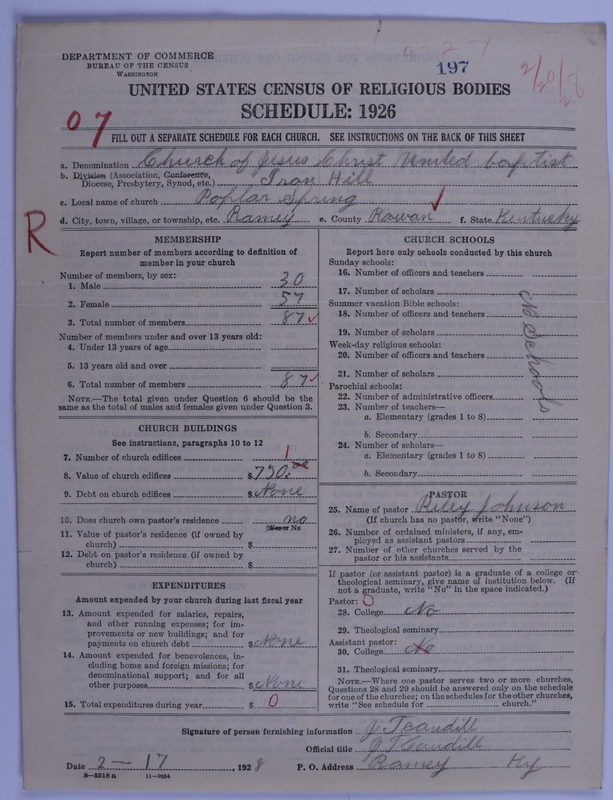 DEPARTMENT OF COMMERCE
BUREAU OF THE CENSUS
WASHINGTON
197
UNITED STATES CENSUS OF RELIGIOUS BODIES
SCHEDULE: 1926
07
FILL OUT A SEPARATE SCHEDULE FOR EACH CHURCH. SEE INSTRUCTIONS ON THE BACK OF THIS SHEET
a. Denomination Church of Jesus Christ United baptist
b. Division (Association, Conference, Diocese, Presbytery, Synod, etc.) Iron Hill
c. Local name of church Poplar Spring
d. City, town, village, or township, etc. Ramey e. County Rowan f. State Kentucky
R
MEMBERSHIP
Report number of members according to definition of
member in your church
Number of members, by sex:
1. Male 30
2. Female 57
3. Total number of members 87
Number of members under and over 13 years old:
4. Under 13 years of age
5. 13 years old and over
6. Total number of members 87
NOTE.—The total given under Question 6 should be
same as the total of males and females given under Question 3.
CHURCH BUILDINGS
See instructions, paragraphs 10 to 12
7. Number of church edifices 1
8. Value of church edifices $ 750.00
9. Debt on church edifices $ None
10. Does church own pastor's residence no
Yes or No
11. Value of pastor's residence (if owned by
church) $
12. Debt on pastor's residence (if owned by
church) $
EXPENDITURES
Amount expended by your church during last fiscal year
13. Amount expended for salaries, repairs,
and other running expenses; for im-
provements or new buildings; and for
payments on church debt $ None
14. Amount expended for benevolences, in-
cluding home and foreign missions; for
denominational support; and for all
other purposes $ None
15. Total expenditures during year $ 0
CHURCH SCHOOLS
Report here only schools conducted by this church
Sunday schools:
16. Number of officers and teachers
17. Number of scholars
Summer vacation Bible schools:
18. Number of officers and teachers
19. Number of scholars
Week-day religious schools:
20. Number of officers and teachers
21. Number of scholars
Parochial schools:
22. Number of administrative officers
23. Number of teachers—
a. Elementary (grades 1 to 8)
b. Secondary
24. Number of scholars—
a. Elementary (grades 1 to 8)
b. Secondary
No Schools
PASTOR
25. Name of pastor Riley Johnson
(If church has no pastor, write "None")
26. Number of ordained ministers, if any, em-
ployed as assistant pastors
27. Number of other churches served by the
pastor or his assistants
If pastor (or assistant pastor) is a graduate of a college or
theological seminary, give name of institution below. (If
not a graduate, write "No" in the space indicated.)
Pastor: 0
28. College No
29. Theological seminary
Assistant pastor:
30. College No
31. Theological seminary
NOTE.—Where one pastor serves two or more churches,
Questions 28 and 29 should be answered only on the schedule
for one of the churches; on the schedules for the other churches,
write "See schedule for church."
Signature of person furnishing information J. T Caudill
Official title J T Caudill
Date 2-17, 1928 P. O. Address Ramey Ky
8-5318 a 11-9034